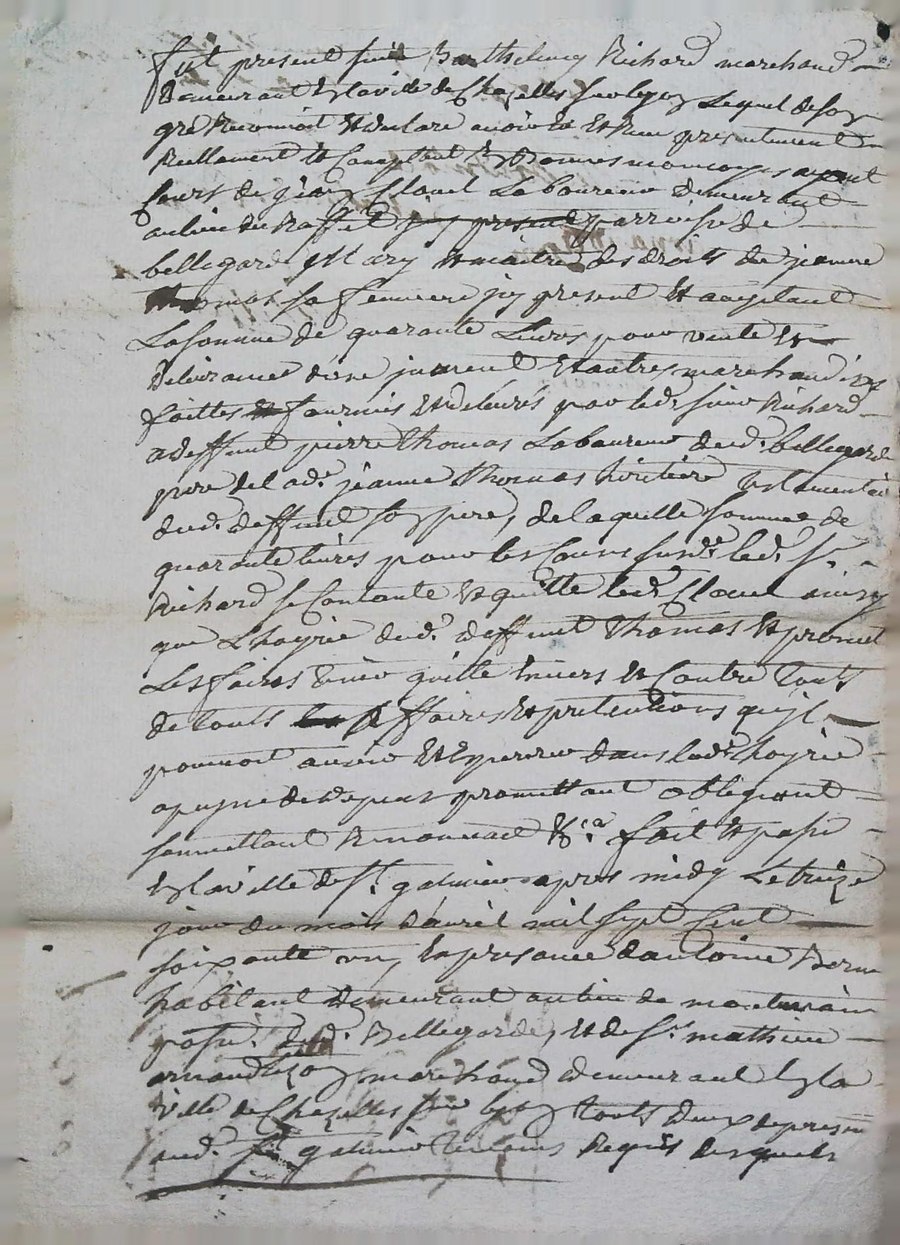 fut present sieur Barthelemy Richard marchand
demeurant en la ville de Chazelles sur lyon Lequel de son
gré Reconnoit et declare avoir eu et Receu presentement
Reellement et Comptant En Bonnes monoyes ayant
Cours de jean Clouel Laboureur demeurant
au lieu du Raffet parroisse de
bellegarde Mary et maitre des droits de jeanne
Thomas sa femme jcy present et acceptant
La somme de quarante Livres pour vente et
delivrance d'une jument et autres marchandises
faittes fournies et delivrés par led. sieur Richard
a deffunt pierre thomas Laboureur dud. bellegarde
pere de lad. jeanne Thomas heritiere testamentaire
dud. deffunt son pere, de laquelle somme de
quarante livres pour les Causes susd. led. Sr.
Richard se Contante et quitte led. Clouel ainsy
que L'hoyrie dud. deffunt Thomas et promet
Les faires tenir quitte Envers et Contre touts
de touts affaires et pretentions qu'jl
pourroit avoir et Esperer dans lad. hoyrie
a peyne de depens promettant obligeant
soumettant Renonceant &c.a fait et passé
En la ville de St. galmier apres midy Le treize
jour du mois d'avril mil sept Cent
soixante un, En presance d'antoine
habitant demeurant au lieu de
paroisse. dud. Bellegarde, et de Sr. mathieu
marchand demeurant En la
ville de Chazelles sur lyon touts deux de present
aud. St. galmier temoins Requis Lesquels